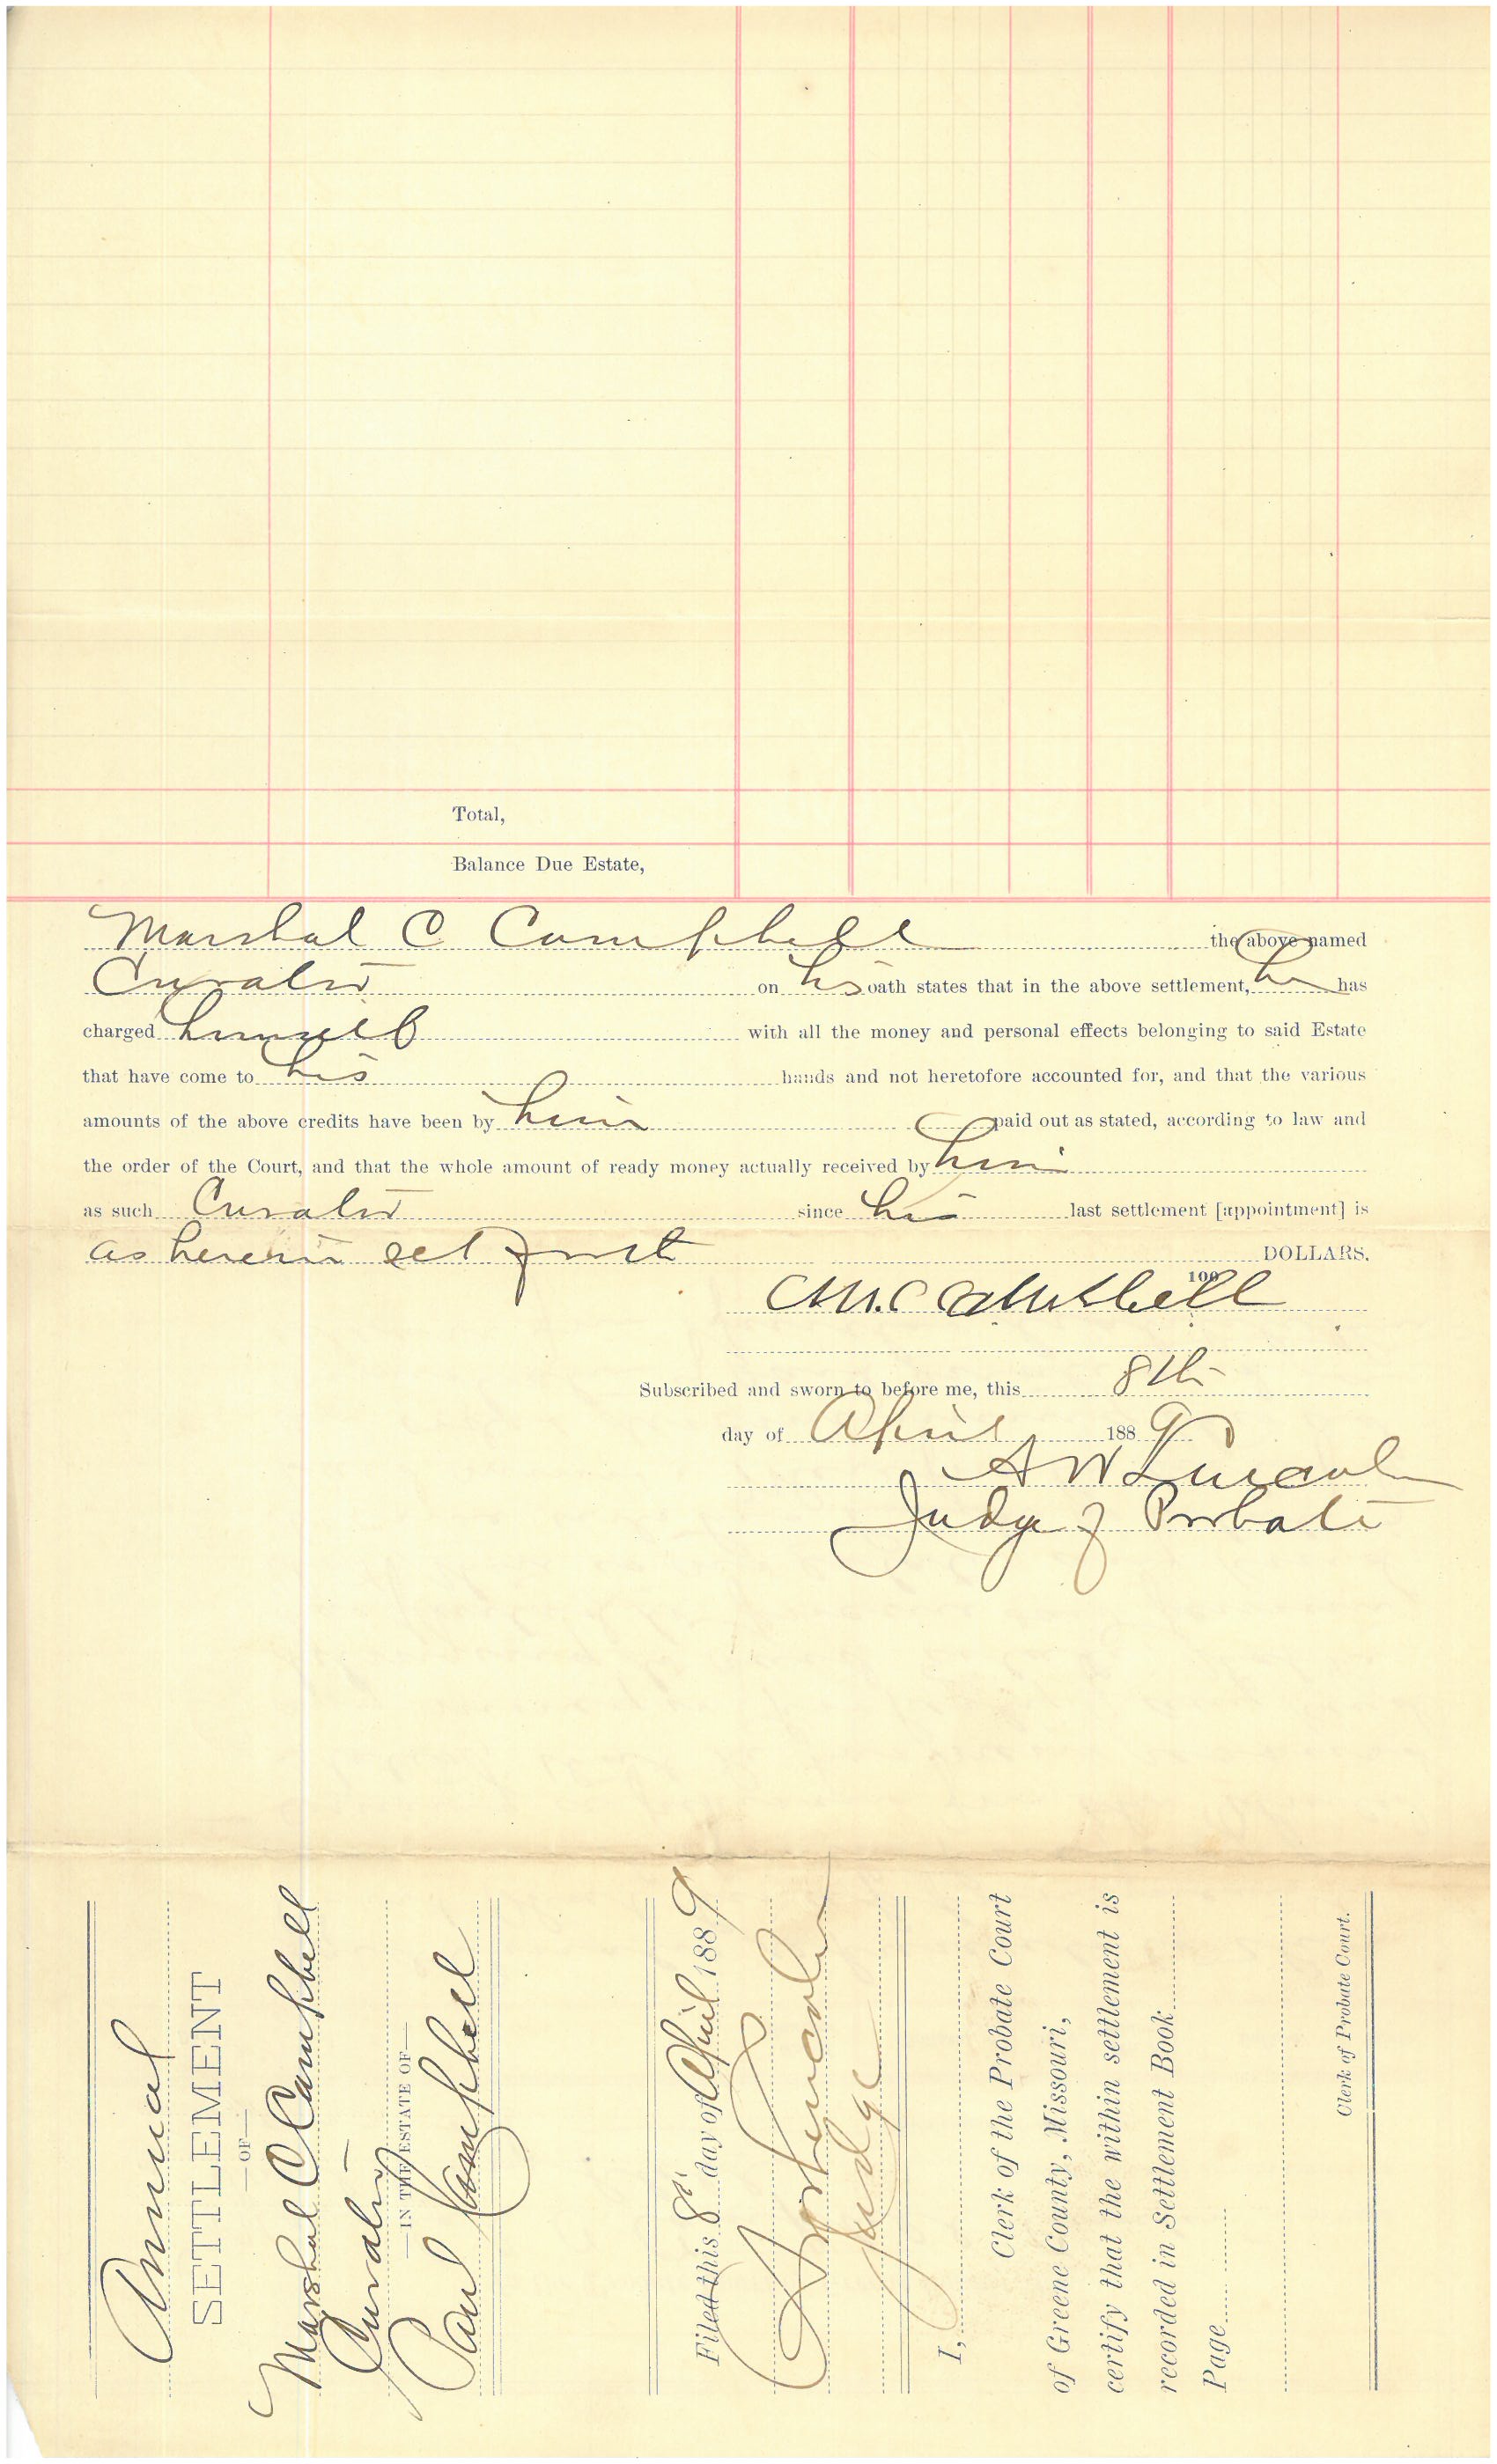 Total,
Balance Due Estate,
Marshal C Campbell the above named
Curator on his oath states that in the above settlement, he has
charged himself with all the money and personal effects belonging to said Estate
that have come to his hands and not heretofore accounted for, and that the various
amounts of the above credits have been by him paid out as stated, according to law and
the order of the Court, and that the whole amount of ready money actually received by him
as such Curator since his last settlement [appointment] is
as herein set forth DOLLARS.
100
C M. Campbell
Subscribed and sworn to before me, this 8th
day of April 1889
A W Lincoln
Judge of Probate
Annual
SETTLEMENT
—OF—
Marshal C Campbell
Curator
—IN THE ESTATE OF—
Paul Campbell
Filed this 8" day of April 1889
A W Lincoln
Judge
I,
Clerk of the Probate Court
of Greene County, Missouri,
certify that the within settlement is
recorded in Settlement Book
Page
Clerk of Probate Court.